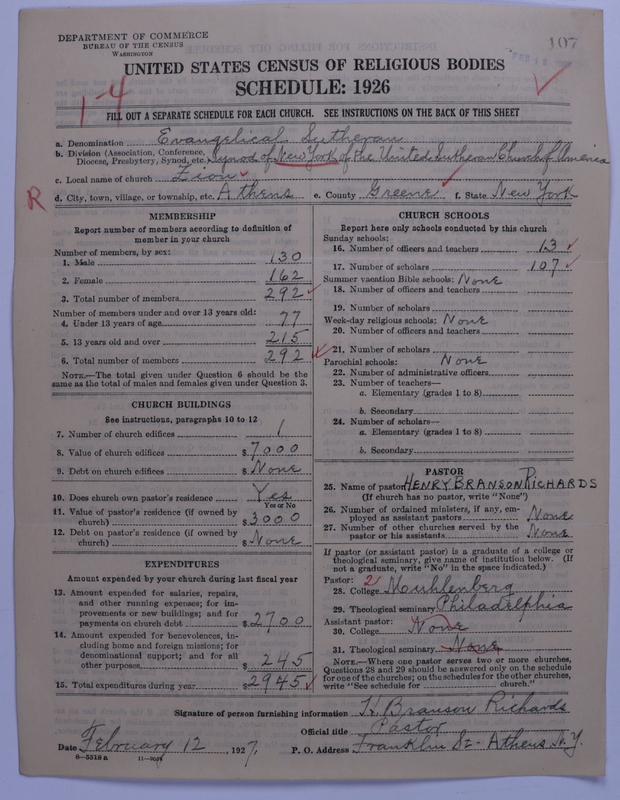 DEPARTMENT OF COMMERCE
BUREAU OF THE CENSUS
WASHINGTON
107
UNITED STATES CENSUS OF RELIGIOUS BODIES
SCHEDULE: 1926
1-4
FILL OUT A SEPARATE SCHEDULE FOR EACH CHURCH. SEE INSTRUCTIONS ON THE BACK OF THIS SHEET
a. Denomination Evangelical Lutheran
b. Division (Association, Conference,
Diocese, Presbytery, Synod, etc.) Synod of New York of the United Lutheran Church of America
c. Local name of church Zion
R
d. City, town, village, or township, etc. Athens e. County Greene f. State New York
MEMBERSHIP
Report number of members according to definition of
member in your church
Number of members, by sex:
1. Male 130
2. Female 162
3. Total number of members 292
Number of members under and over 13 years old:
4. Under 13 years of age 77
5. 13 years old and over 215
6. Total number of members 292
NOTE.—The total given under Question 6 should be
same as the total of males and females given under Question 3.
CHURCH BUILDINGS
See instructions, paragraphs 10 to 12
7. Number of church edifices 1
8. Value of church edifices $7000
9. Debt on church edifices $None
10. Does church own pastor's residence Yes
Yes or No
11. Value of pastor's residence (if owned by
church) $3000
12. Debt on pastor's residence (if owned by
church) $None
EXPENDITURES
Amount expended by your church during last fiscal year
13. Amount expended for salaries, repairs,
and other running expenses; for im-
provements or new buildings; and for
payments on church debt $2700
14. Amount expended for benevolences, in-
cluding home and foreign missions; for
denominational support; and for all
other purposes $245
15. Total expenditures during year $2945
CHURCH SCHOOLS
Report here only schools conducted by this church
Sunday schools:
16. Number of officers and teachers 13
17. Number of scholars 107
Summer vacation Bible schools: None
18. Number of officers and teachers
19. Number of scholars
Week-day religious schools: None
20. Number of officers and teachers
21. Number of scholars
Parochial schools: None
22. Number of administrative officers
23. Number of teachers—
a. Elementary (grades 1 to 8)
b. Secondary
24. Number of scholars—
a. Elementary (grades 1 to 8)
b. Secondary
PASTOR
25. Name of pastor HENRY BRANSON RICHARDS
(If church has no pastor, write "None")
26. Number of ordained ministers, if any, em-
ployed as assistant pastors None
27. Number of other churches served by the
pastor or his assistants None
If pastor (or assistant pastor) is a graduate of a college or
theological seminary, give name of institution below. (If
not a graduate, write "No" in the space indicated.)
Pastor: 2
28. College Mouhlenberg
29. Theological seminary Philadelphia
Assistant pastor:
30. College None
31. Theological seminary None
NOTE.—Where one pastor serves two or more churches,
Questions 28 and 29 should be answered only on the schedule
for one of the churches; on the schedules for the other churches,
write "See schedule for church."
Signature of person furnishing information H. Branson Richards
Official title Pastor
Date February 12, 1927. P. O. Address Franklin St- Athens N.Y.
8-5518a